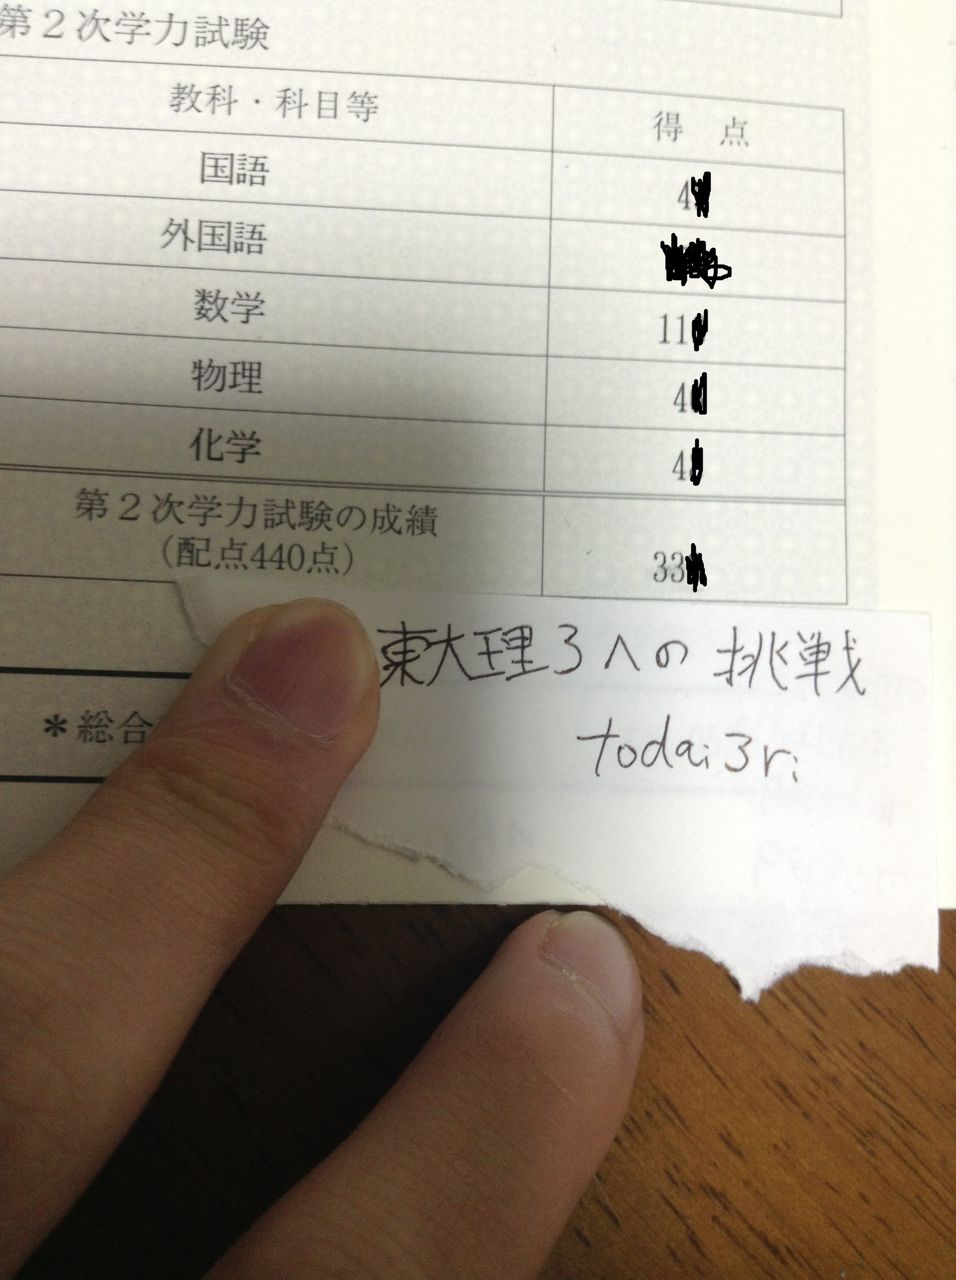 第２次学力試験
教科・科目等 得 点
国語 4
外国語
数学 11
物理 4
化学 4
第２次学力試験の成績
（配点440点） 33
＊総合
東大理3への挑戦
todai3ri